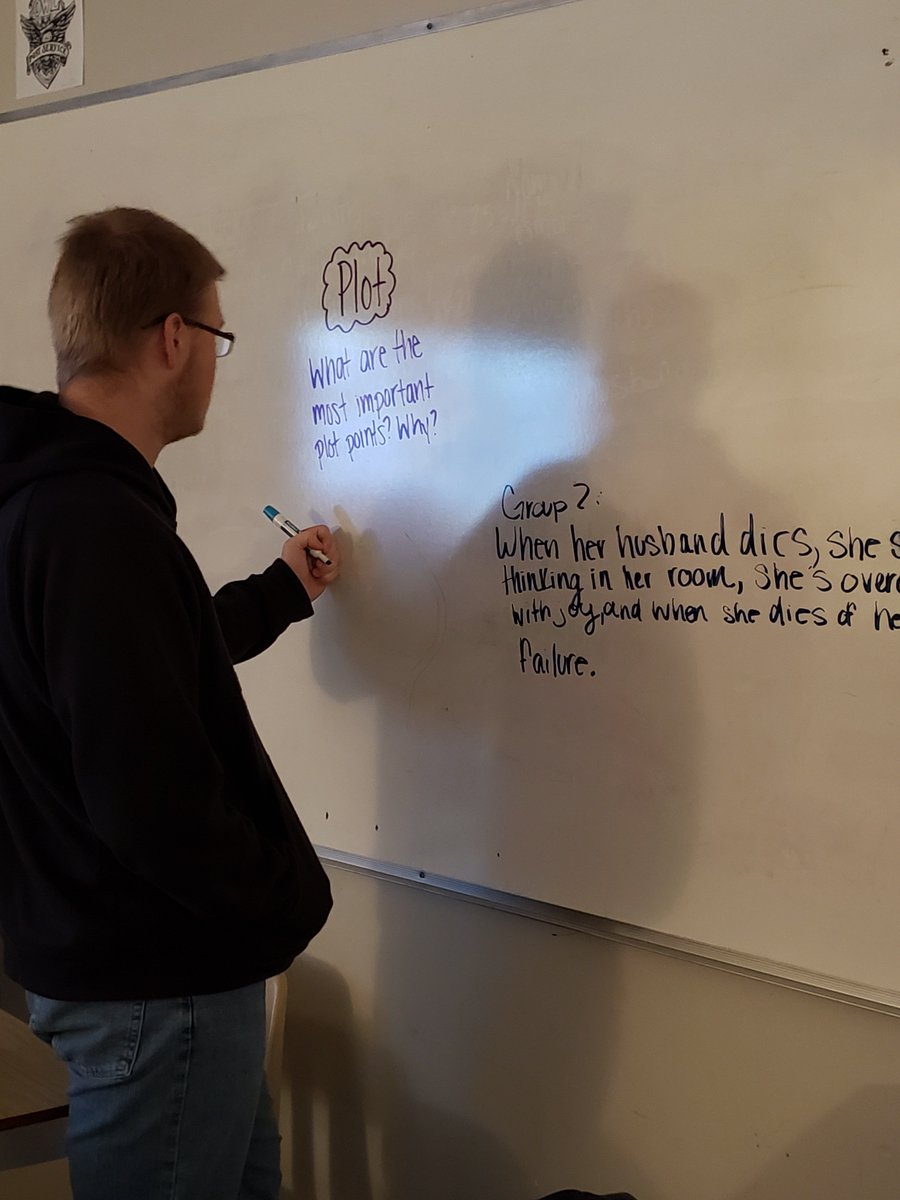 OWL
POST SERVICE
Plot
What are the
most important
plot points? Why?
Group 2:
When her husband dies, she's
thinking in her room, she's overc
with joy, and when she dies of he
failure.